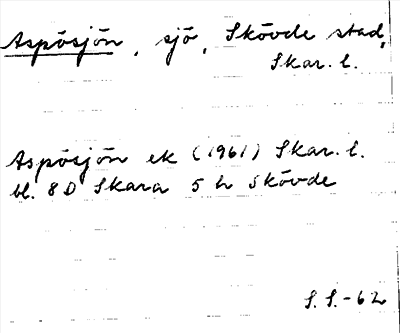 Aspösjön, sjö, Skövde stad,
Skar. l.
Aspösjön ek (1961) Skar. l.
bl. 8 D Skara 5 h Skövde
S. S.-62